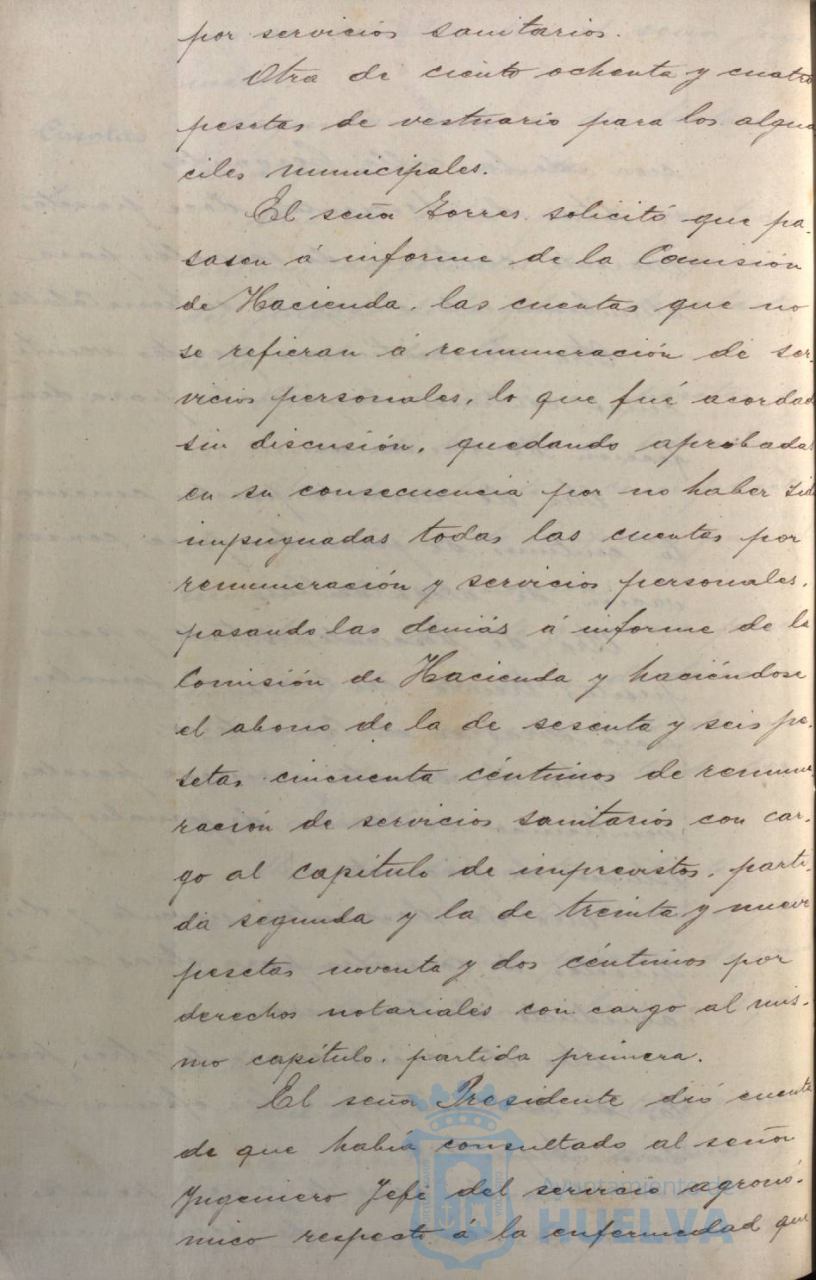 por servicios sanitarios.
Otra de ciento ochenta y cuatro
pesetas de vestuario para los algua
ciles municipales.
El señor Torres solicitó que pa-
sasen á informe de la Comisión
de Hacienda, las cuentas que no
se refieran á remuneración de ser-
vicios personales, lo que fué acordad
sin discusión, quedando aprobadas
en su consecuencia por no haber sid
impugnadas todas las cuentas por
remuneración y servicios personales,
pasando las demás á informe de la
Comisión de Hacienda y haciéndose
el abono de la de sesenta y seis pe-
setas cincuenta céntimos de remune
ración de servicios sanitarios con car-
go al capitulo de imprevistos, parti-
da segunda y la de treinta y nueve
pesetas noventa y dos céntimos por
derechos notariales con cargo al mis-
mo capítulo, partida primera.
El señor Presidente dió cuenta
de que había consultado al señor
Ingeniero Jefe del servicio agronó-
mico respecto á la enfermedad que
Ayuntamiento de
HUELVA